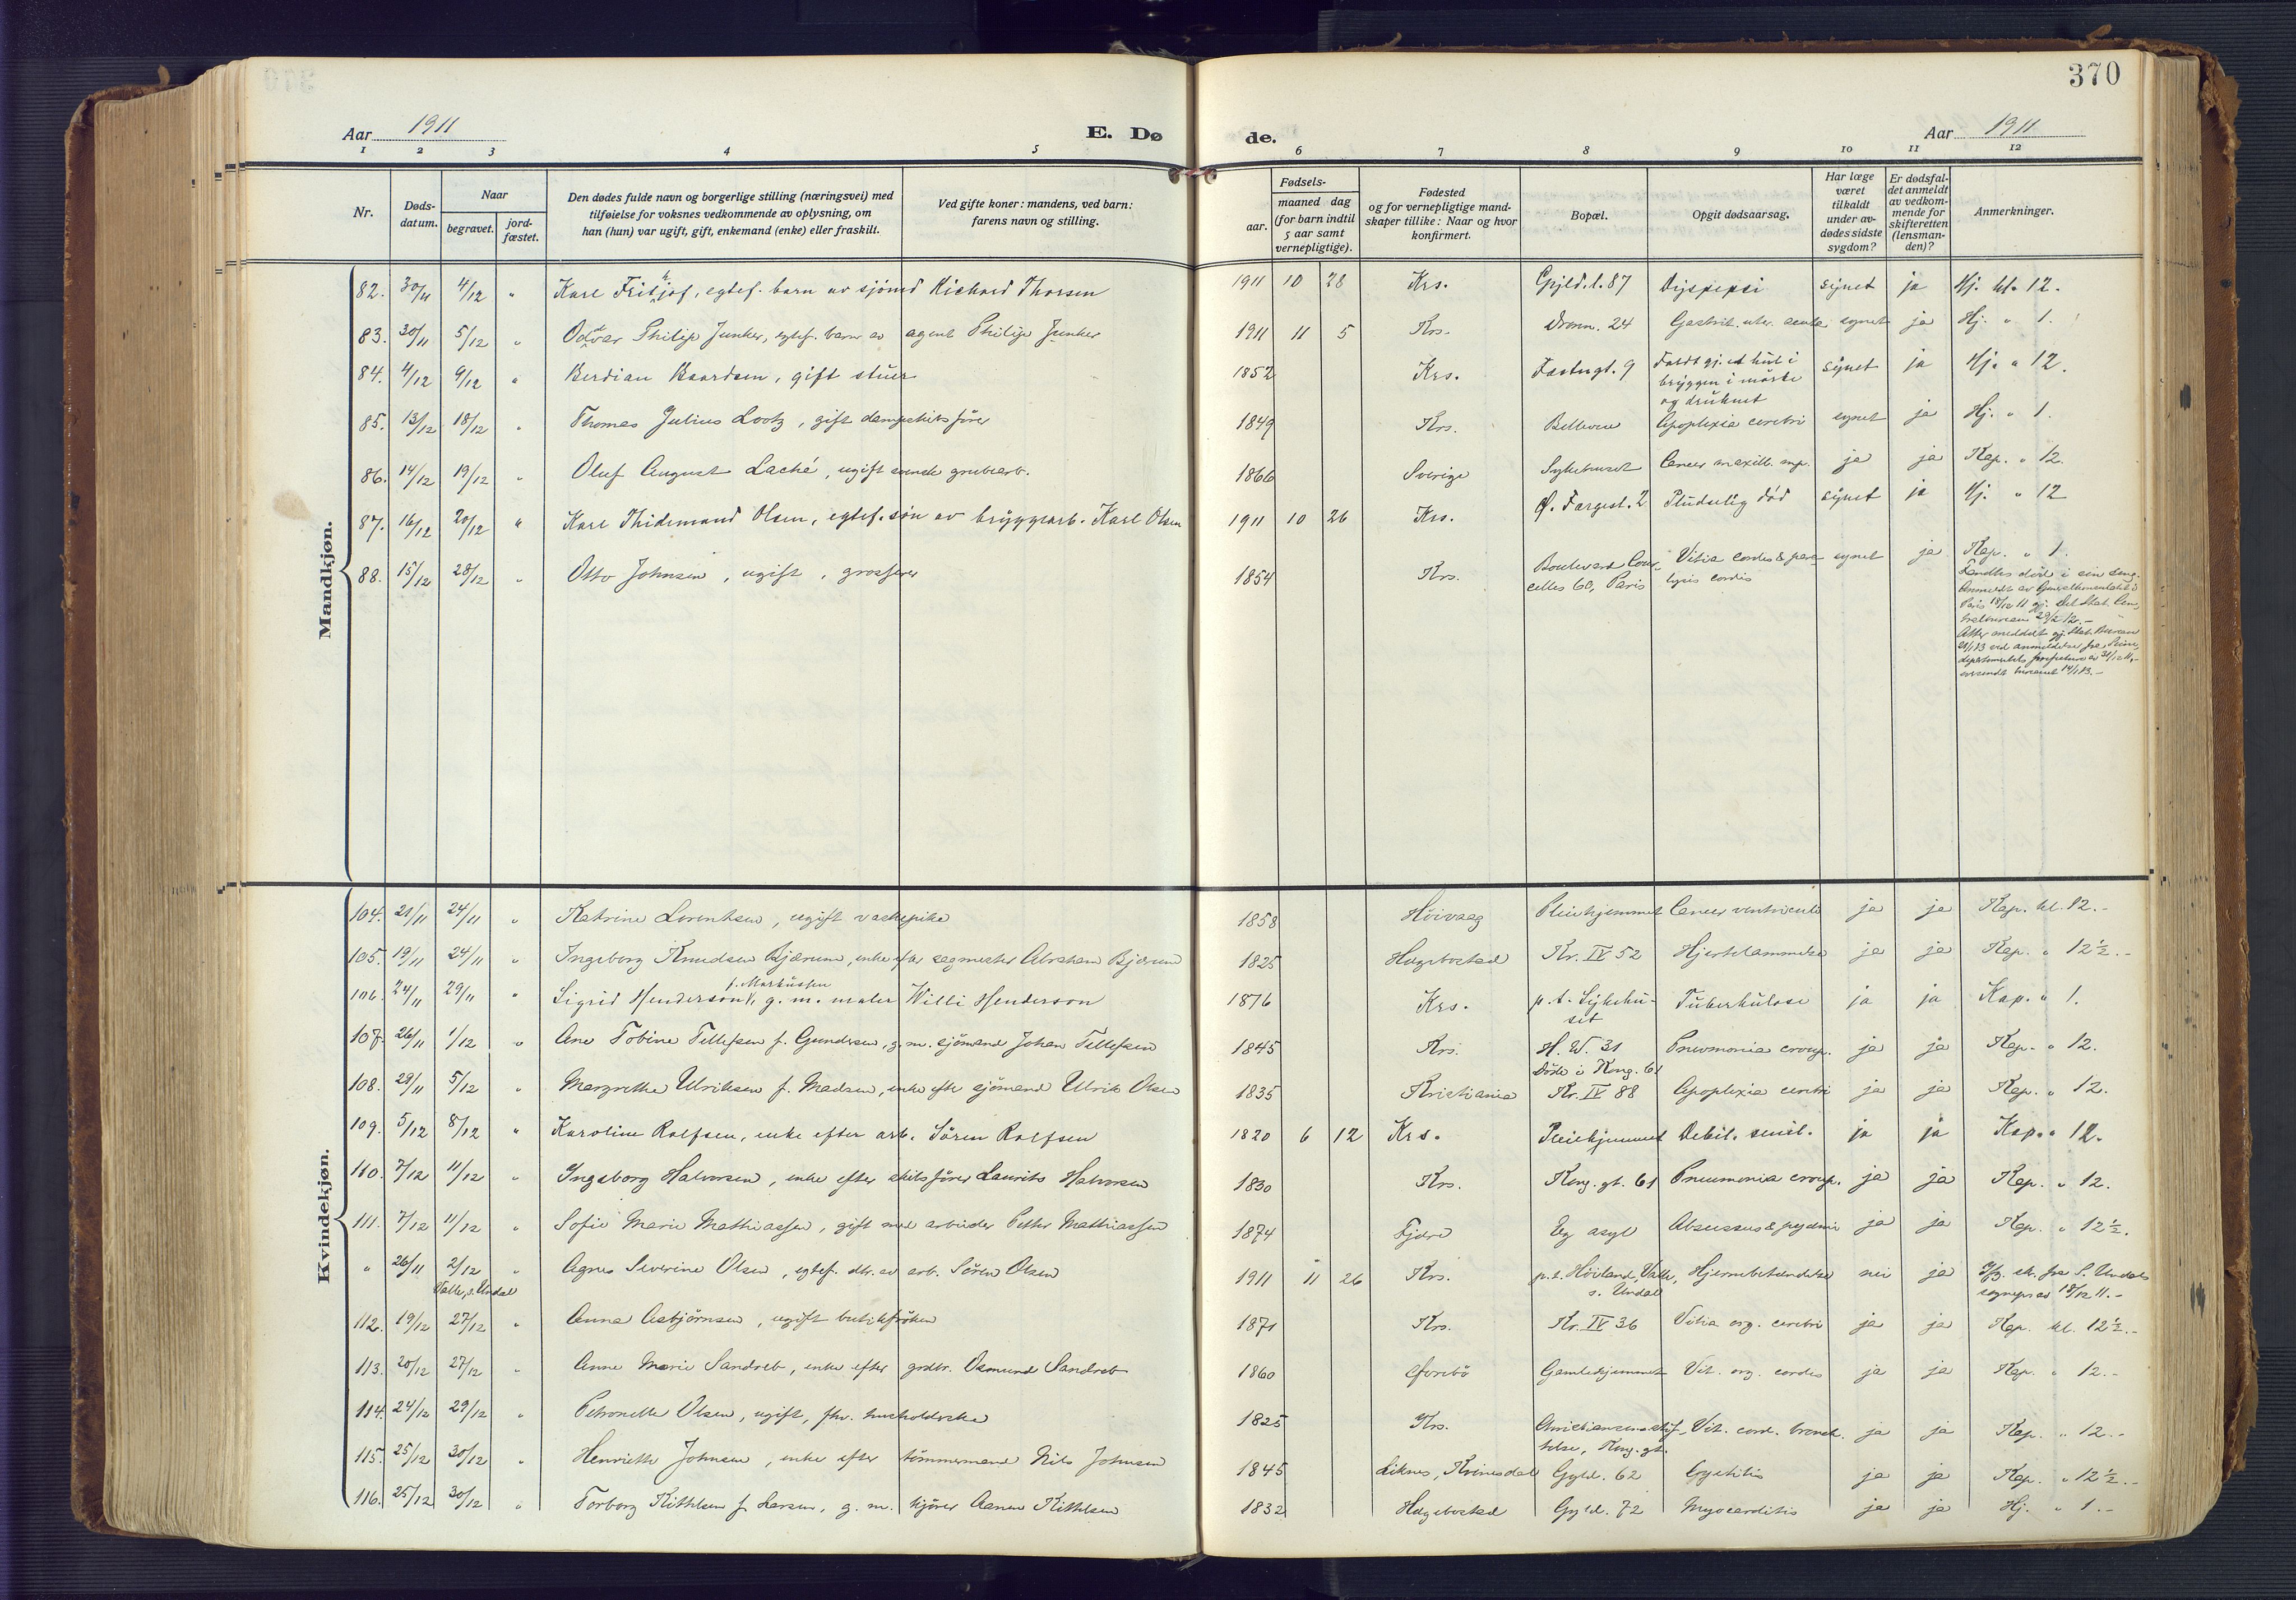 370
Aar 1911
E. Dø
de.
Aar 1911
1 2 3 4 5 6 7 8 9 10 11 12
Nr.
Døds-datum.
Naar
begravet.
jord-fæstet.
Den dødes fulde navn og borgerlige stilling (næringsvei) med
tilføielse for voksnes vedkommende av oplysning, om
han (hun) var ugift, gift, enkemand (enke) eller fraskilt.
Ved gifte koner: mandens, ved barn:
farens navn og stilling.
Fødsels-
aar.
maaned dag
(for barn indtil
5 aar samt
vernepligtige).
Fødested
og for vernepligtige mand-
skaper tillike: Naar og hvor
konfirmert.
Bopæl.
Opgit dødsaarsag.
Har læge
været
tilkaldt
under av-
dødes sidste
sygdom?
Er dødsfal-
det anmeldt
av vedkom-
mende for
skifteretten
(lensman-
den)?
Anmerkninger.
Mandkjøn.
82. 30/11 4/12 " Karl Fritjof, egtef. barn av sjömd Richard Thorsen 1911 10 28 Krs. Gyld. l. 87 Dyspepsi synet ja Hj. kl. 12.
83. 30/11 5/12 " Oddvar Philip Junker, egtef. barn av agent Philip Junker 1911 11 5 Krs. Dronn. 24 synet ja Hj. " 1.
84. 4/12 9/12 " Berdian Baardsen, gift stuer 1852 Krs. Fæstngt. 9 Faldt gj. et hul i
bryggen i mörke
og druknet synet ja Hj. " 12.
85. 13/12 18/12 " Thomas Julius Lootz, gift dampskibsfører 1849 Krs. Bellevue Apoplexia cerebri synet ja Hj. " 1.
86. 14/12 19/12 " Oluf August Laché, ugift svensk grubearb. 1866 Sverige Sykehuset Cancer maxill. sup. ja ja Kap. " 12.
87. 16/12 20/12 " Karl Thidemand Olsen, egtef. søn av bryggearb. Karl Olsen 1911 10 26 Krs. Ø. 2 Pludselig død synet ja Hj. " 12
88. 15/12 28/12 " Otto Johnsen, ugift, grosserer 1854 Krs. Boulevard Cour-
celles 60, Paris Vitia cordis & para-
lysis cordis synet ja Kap. " 1.
Fandtes död i sin seng.
Anmeldt av Generalkonsulatet i
Paris 18/12 11 gj. Det Stat. Cen-
tralbureau
Kvindekjøn.
104. 21/11 24/11 " Katrine Lorentsen, ugift vaskepike 1858 Höivaag Pleiehjemmet Cancer ventriculi ja ja Kap. kl. 12.-
105. 19/11 24/11 " Ingeborg Knudsen Bjærum, enke efter sagmester Abraham Bjærum 1825 Hægebostad Kr. IV 52 Hjertelammelse ja ja Kap. " 12½.-
106. 24/11 29/11 " Sigrid Henderson f. Markussen, g. m. maler Willi Henderson 1876 Krs. p.t. Sykehu-
set Tuberkulose ja ja Kap. " 1.
107. 26/11 1/12 " Ane Tobine Tellefsen f. Gundersen, g. m. sjømand Johan Tellefsen 1845 Krs. H. W. 31
Döde i Kong. 61 Pneumonia croup. ja ja Kap. " 12.
108. 29/11 5/12 " Margrethe Ulriksen f. Madsen, enke efter sjömand Ulrik Olsen 1835 Kristiania Kr. IV 88 Apoplexia cerebri ja ja Kap. " 12.
109. 5/12 8/12 " Karoline Rolfsen, enke efter arb. Sören Rolfsen 1820 6 12 Krs. Pleiehjemmet Debil. senil. ja ja Kap. " 12.
110. 7/12 11/12 " Ingeborg Halvorsen, enke efter skibsfører Laurits Halvorsen 1830 Krs. Kong. gt. 61 Pneumonia croup. ja ja Kap. " 12.
111. 7/12 11/12 " Sofie Marie Mathiassen, gift med arbeider Petter Mathiassen 1874 Fjære Eg asyl Abscessus & pyæmi ja ja Kap. " 12½.
" 26/11 2/12 " Agnes Severine Olsen, egtef. dtr. av arb. Sören Olsen 1911 11 26 Krs. p.t. Höiland, Valle,
s. Undal Hjernebetændelse nei ja fra S. Undals
sogneprest 18/12 11.-
Valle, s. Undal
112. 19/12 27/12 " Anna Asbjørnsen, ugift butikfröken 1871 Krs. Kr. IV 36 Vitia org. cerebri ja ja Kap. kl. 12½.-
113. 20/12 27/12 " Anne Marie Sandreb, enke efter grdbr. Osmund Sandreb 1860 Gamlehjemmet Vit. org. cordis ja ja Kap. " 12.-
114. 24/12 29/12 " Petronelle Olsen, ugift, fhv. husholderske 1825 Krs. Christiansens stif-
telse, Kong. gt. Vit. cord. bronch. ja ja Kap. " 12.-
115. 25/12 30/12 " Henriette Johnsen, enke efter tömmermand Nils Johnsen 1845 Liknes, Kvinesdal Gyld. 62 Cystitis ja ja Kap. " 12½.-
116. 25/12 30/12 " Torborg Kittelsen f. Larsen, g. m. kjører Aanen Kittelsen 1832 Hægebostad Gyld. 72 Myocarditis ja ja Hj. " 1.-